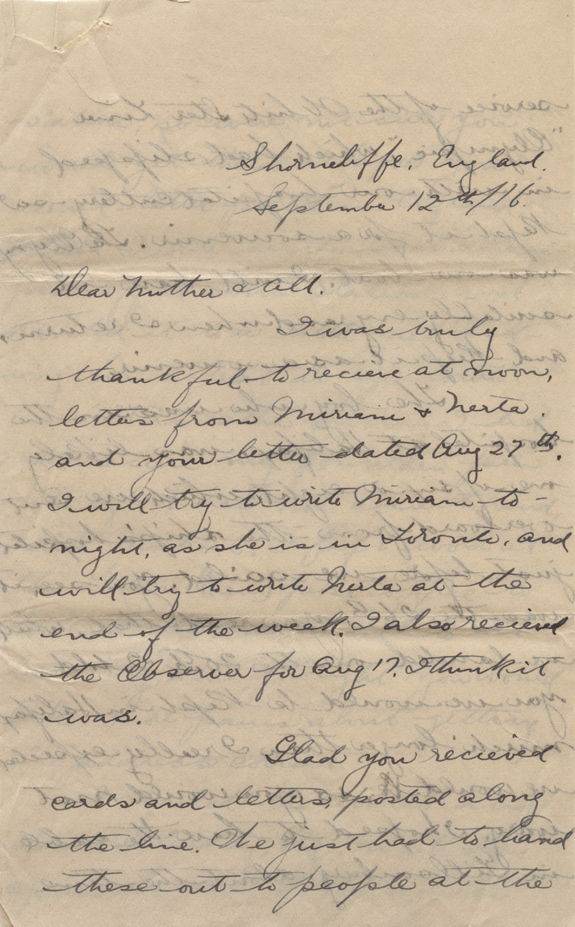 Shorncliffe, England.
September 12th/16.
Dear Mother & all.
I was truly
thankful to recieve at noon,
letters from Miriam & Nerta.
and your letter dated Aug 27th.
I will try to write Miriam to-
night, as she is in Toronto, and
will try to write Nerta at the
end of the week. I also recieved
the Observer for Aug 17. I think it
was.
Glad you recieved
cards and letters, posted along
the line. We just had to hand
these out to people at the